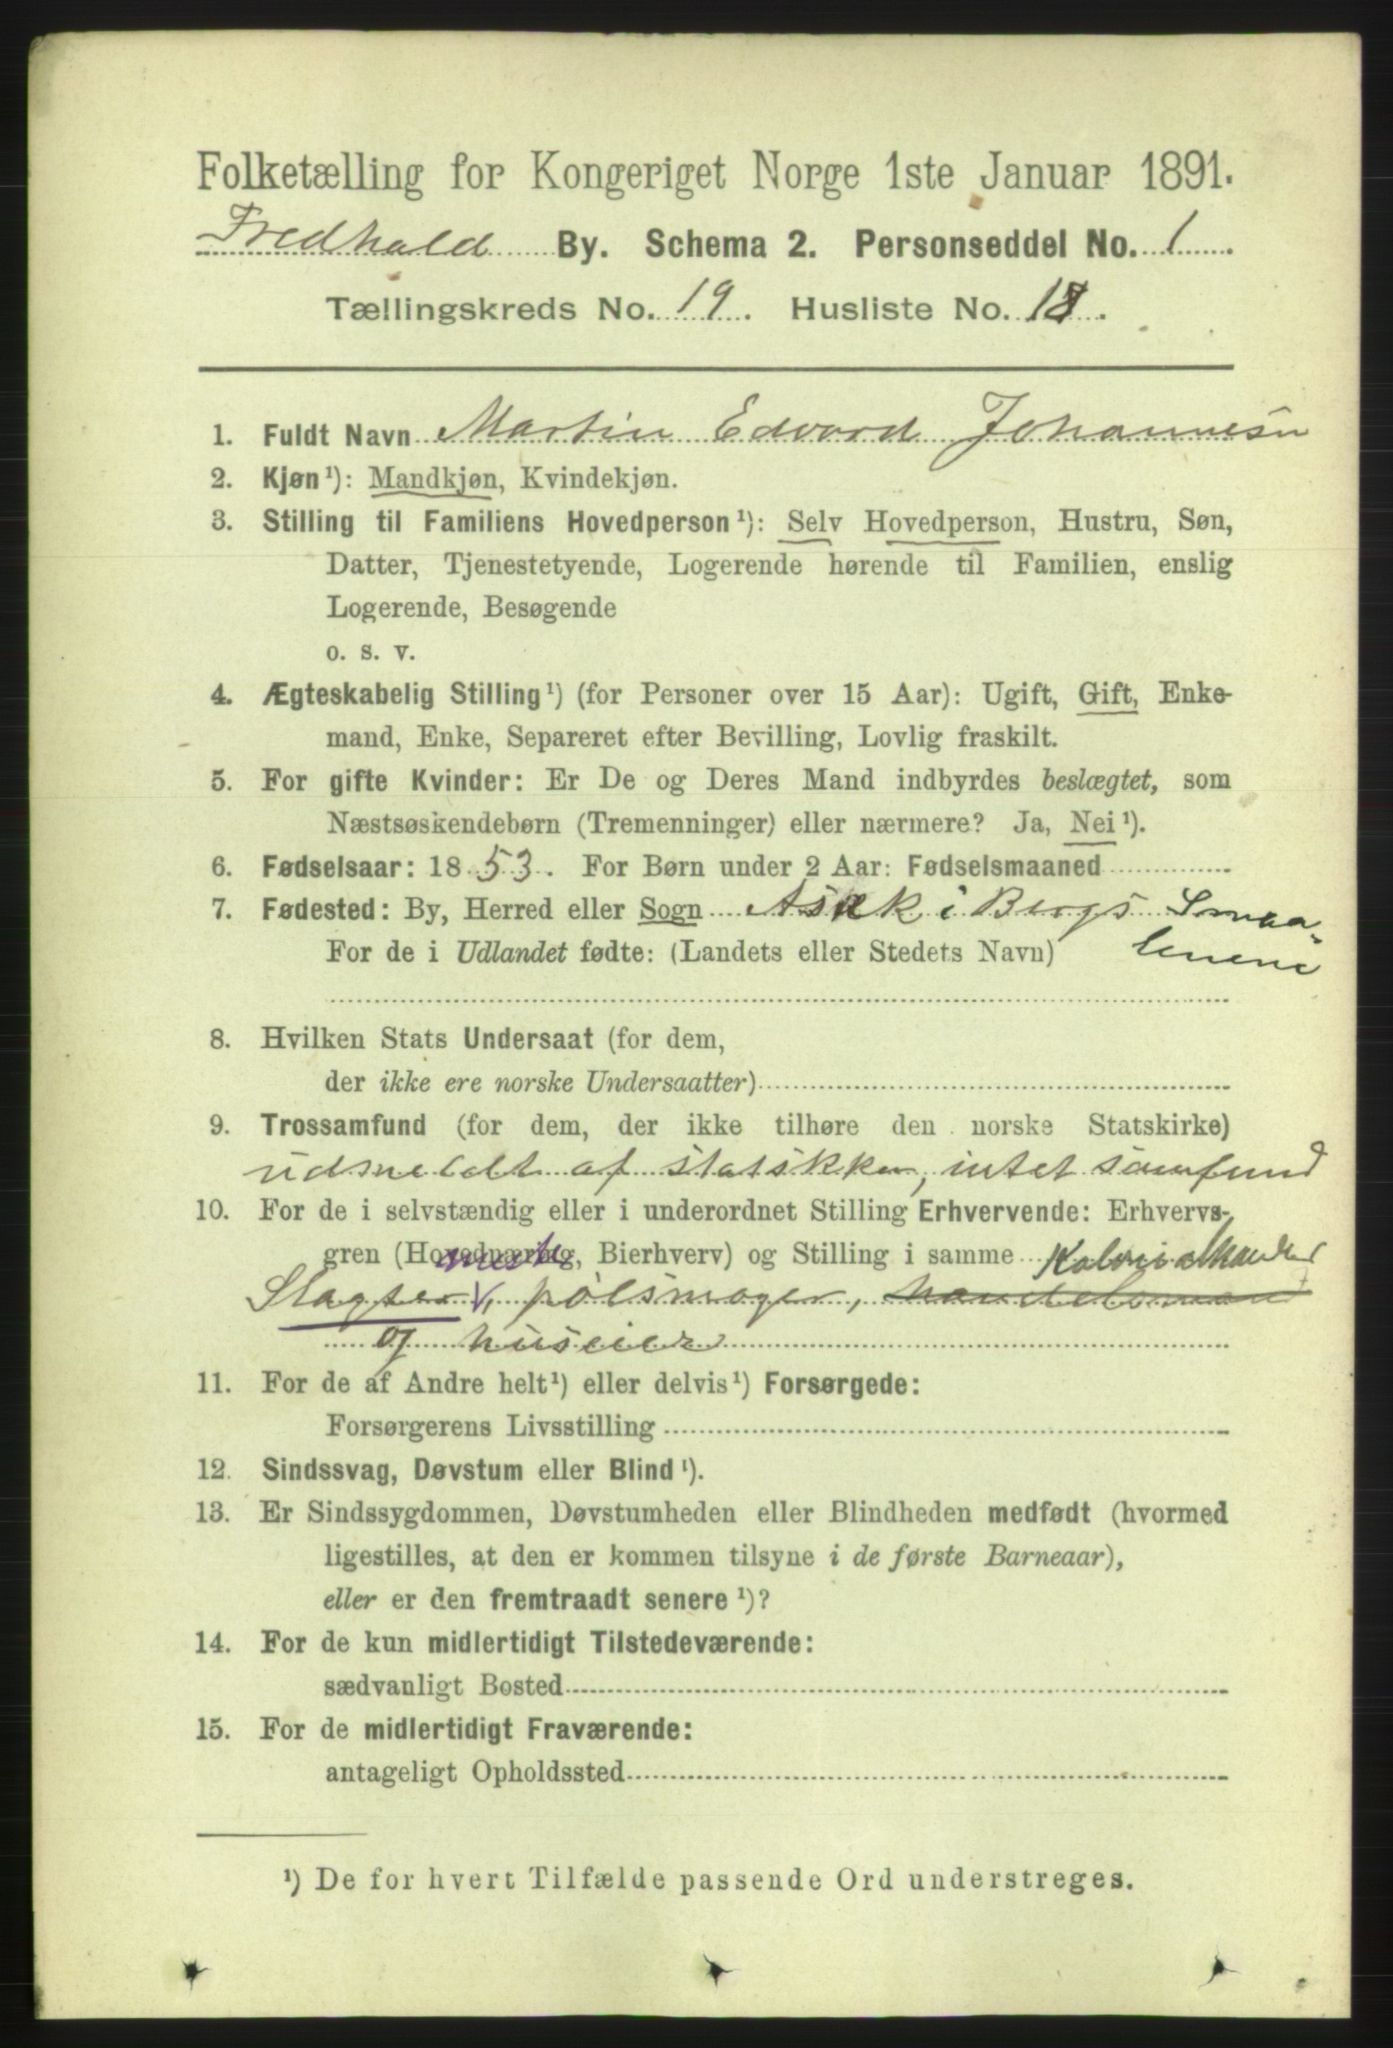 Folketælling for Kongeriget Norge 1ste Januar 1891.
Fredhald By. Schema 2. Personseddel No. 1
Tællingskreds No. 19. Husliste No. 18.
1. Fuldt Navn Martin Edvard Johannesen
2. Kjøn¹): Mandkjøn, Kvindekjøn.
3. Stilling til Familiens Hovedperson¹): Selv Hovedperson, Hustru, Søn,
Datter, Tjenestetyende, Logerende hørende til Familien, enslig
Logerende, Besøgende
o. s. v.
4. Ægteskabelig Stilling¹) (for Personer over 15 Aar): Ugift, Gift, Enke-
mand, Enke, Separeret efter Bevilling, Lovlig fraskilt.
5. For gifte Kvinder: Er De og Deres Mand indbyrdes beslægtet, som
Næstsøskendebørn (Tremenninger) eller nærmere? Ja, Nei¹).
6. Fødselsaar: 1853. For Børn under 2 Aar: Fødselsmaaned
7. Fødested: By, Herred eller Sogn Asak i Bergs Smaa-
For de i Udlandet fødte: (Landets eller Stedets Navn) lenene
8. Hvilken Stats Undersaat (for dem,
der ikke ere norske Undersaatter)
9. Trossamfund (for dem, der ikke tilhøre den norske Statskirke)
udmeldt af statskken, intet samfund
10. For de i selvstændig eller i underordnet Stilling Erhvervende: Erhvervs-
gren (Hovednæring, Bierhverv) og Stilling i samme Kolonialhandler
Slagter, pølsmager, handelsmand
og huseier
11. For de af Andre helt¹) eller delvis¹) Forsørgede:
Forsørgerens Livsstilling
12. Sindssvag, Døvstum eller Blind¹).
13. Er Sindssygdommen, Døvstumheden eller Blindheden medfødt (hvormed
ligestilles, at den er kommen tilsyne i de første Barneaar),
eller er den fremtraadt senere¹)?
14. For de kun midlertidigt Tilstedeværende:
sædvanligt Bosted
15. For de midlertidigt Fraværende:
antageligt Opholdssted
¹) De for hvert Tilfælde passende Ord understreges.